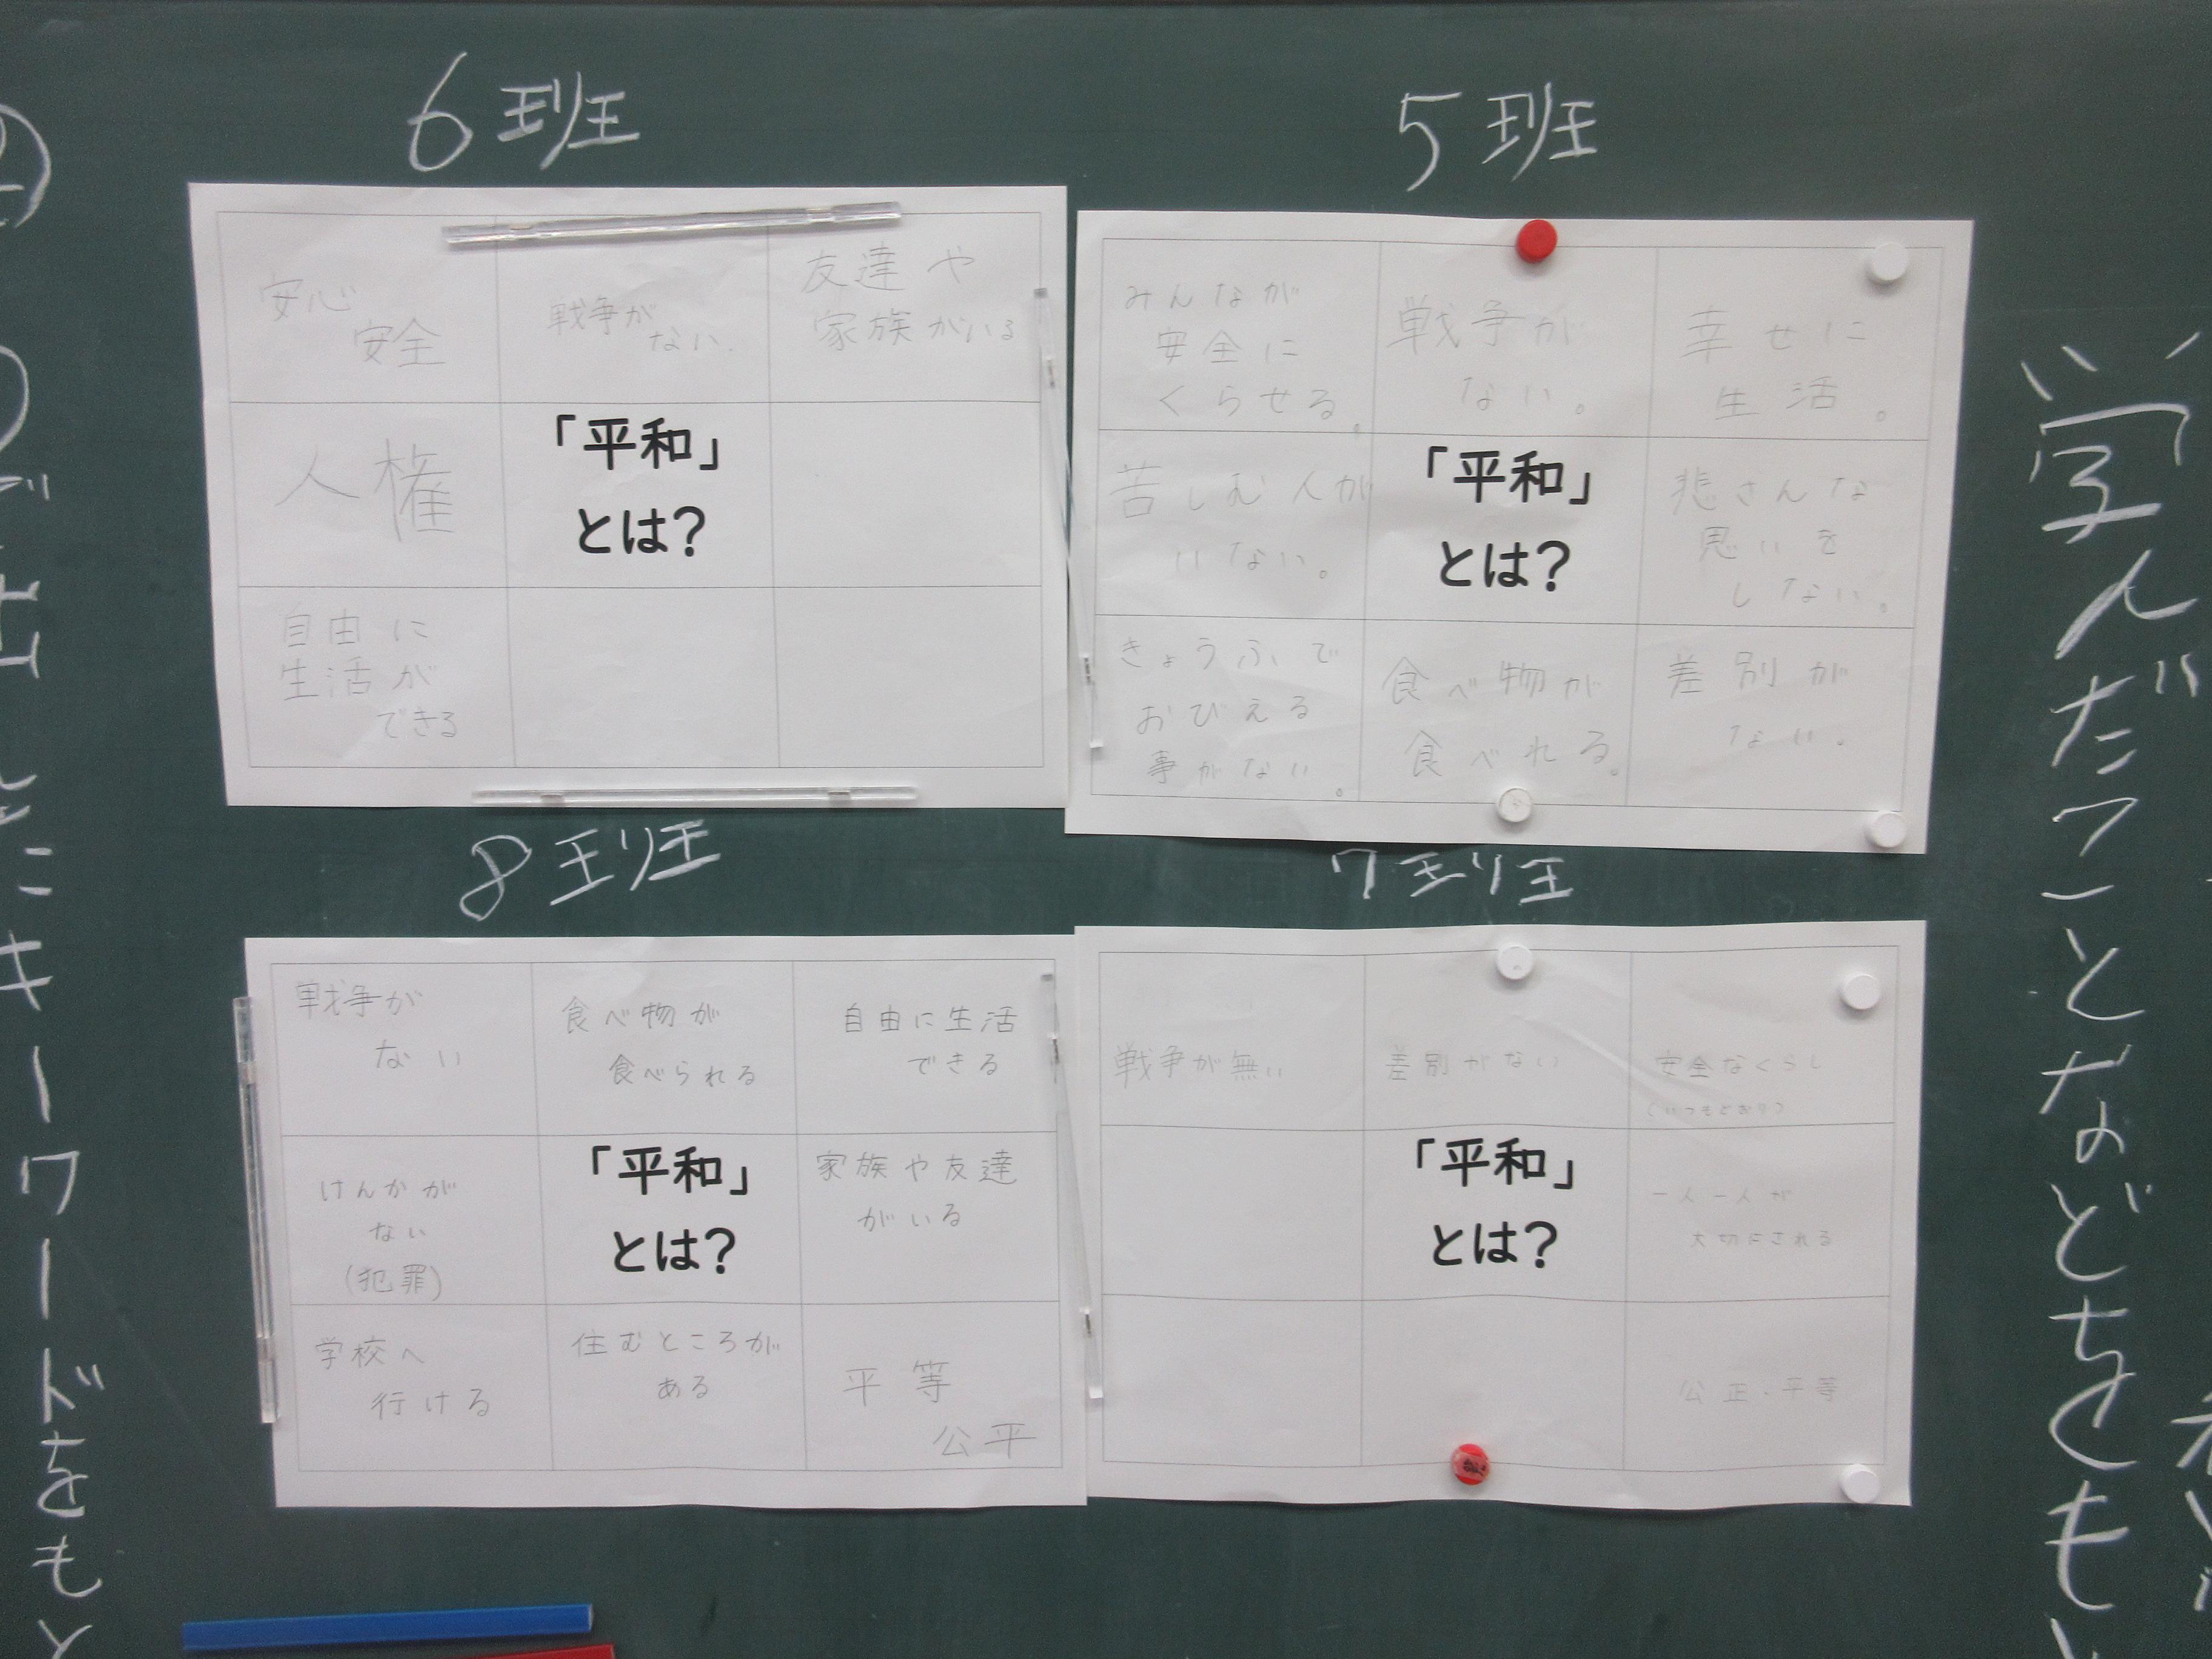 6班
安心
安全
戦争が
ない.
友達や
家族がいる
人権
「平和」
とは?
自由に
生活が
できる
5班
みんなが
安全に
くらせる。
戦争が
ない。
幸せに
生活。
苦しむ人が
いない。
「平和」
とは?
悲さんな
思いを
しない。
きょうふで
おびえる
事がない。
食べ物が
食べれる。
差別が
ない。
8班
戦争が
ない
食べ物が
食べられる
自由に生活
できる
けんかが
ない
(犯罪)
「平和」
とは?
家族や友達
がいる
学校へ
行ける
住むところが
ある
平等
公平
7班
戦争が無い
差別がない
安全なくらし
(いつもどおり)
「平和」
とは?
一人一人が
大切にされる
公正・平等
学んだことなどをも
キーワードをもと